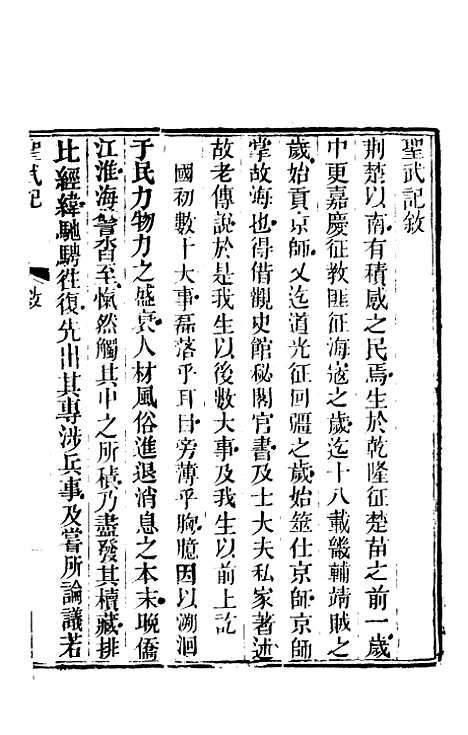 聖武記敘
荆楚以南有積感之民焉生於乾隆征楚苗之前一歲
中更嘉慶征教匪征海寇之歲迄十八載畿輔靖賊之
歲始貢京師又迄道光征回疆之歲始筮仕京師京師
掌故海也得借觀史館秘閣官書及士大夫私家著述
故老傳說於是我生以後數大事及我生以前上訖
國初數十大事磊落乎耳目旁薄乎胸臆因以溯洄
于民力物力之盛衰人材風俗進退消息之本末晚僑
江淮海警沓至愾然觸其中之所積乃盡發其櫝藏排
比經緯馳騁往復先出其專涉兵事及嘗所論議若
聖武記
敘
一